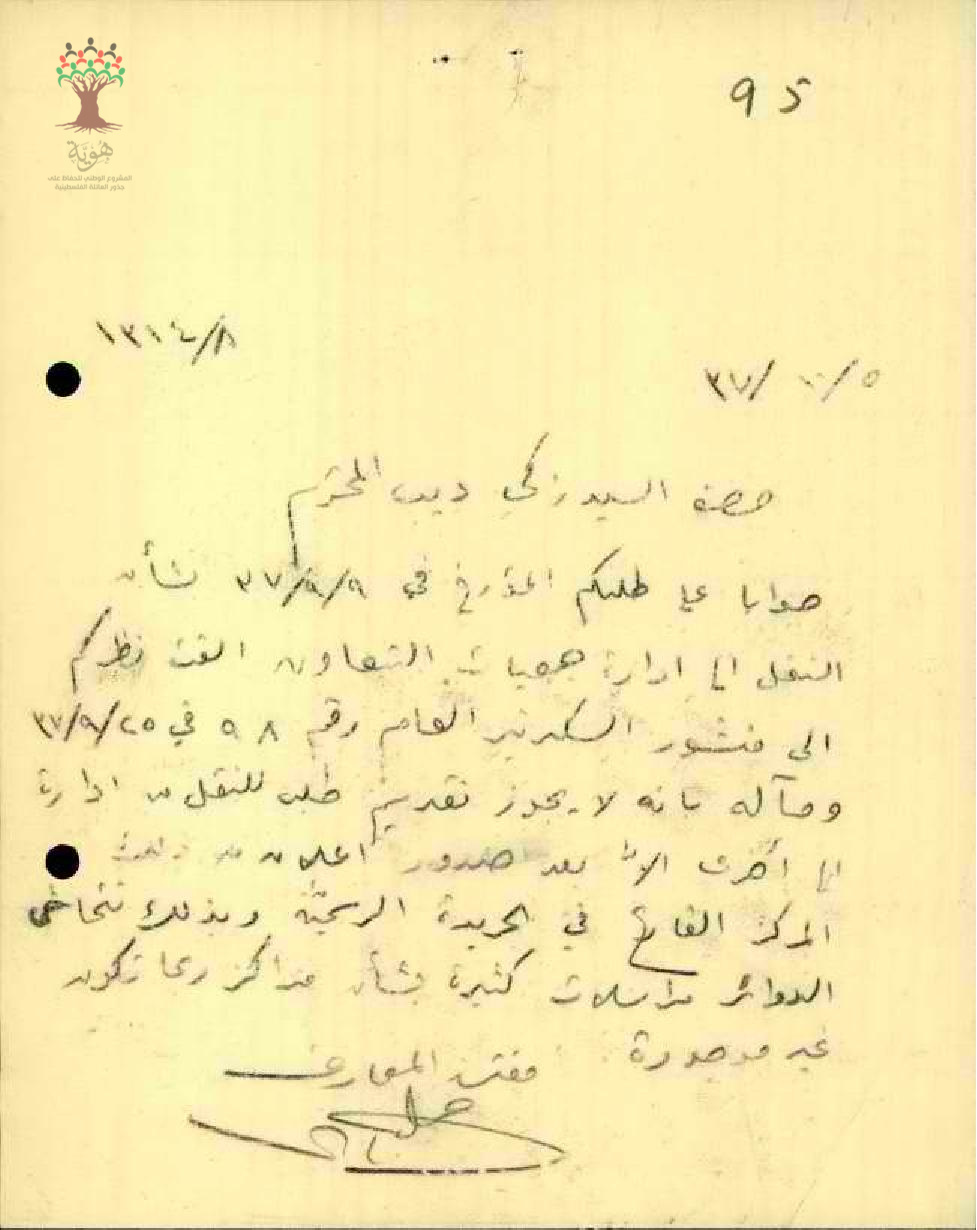 هُوِيَّة
المشروع الوطني للحفاظ على
جذور العائلة الفلسطينية
95
١٣١٤/٨
٥/١٠/٣٧
حضرة السيد زكي ديب المحترم
جوابا على طلبكم المؤرخ في ٩/٩/٣٧ بشأن
النقل الى ادارة جمعيات التعاون الفت نظركم
الى منشور السكرتير العام رقم ٩٨ في ٢٥/٩/٣٧
ومآله بانه لا يجوز تقديم طلب للنقل من ادارة
الى أخرى الا بعد صدور اعلان عن
المركز الفارغ في الجريدة الرسمية وبذلك تتحاشى
الدوائر مراسلات كثيرة بشأن مراكز ربما تكون
غير موجودة
مفتش المعارف